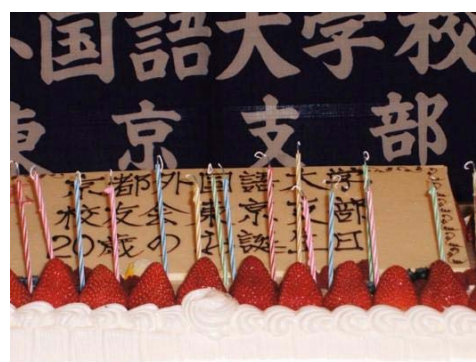 外国語大学校
東京支部
京都外国語大学
校友会東京支部
20歳のお誕生日